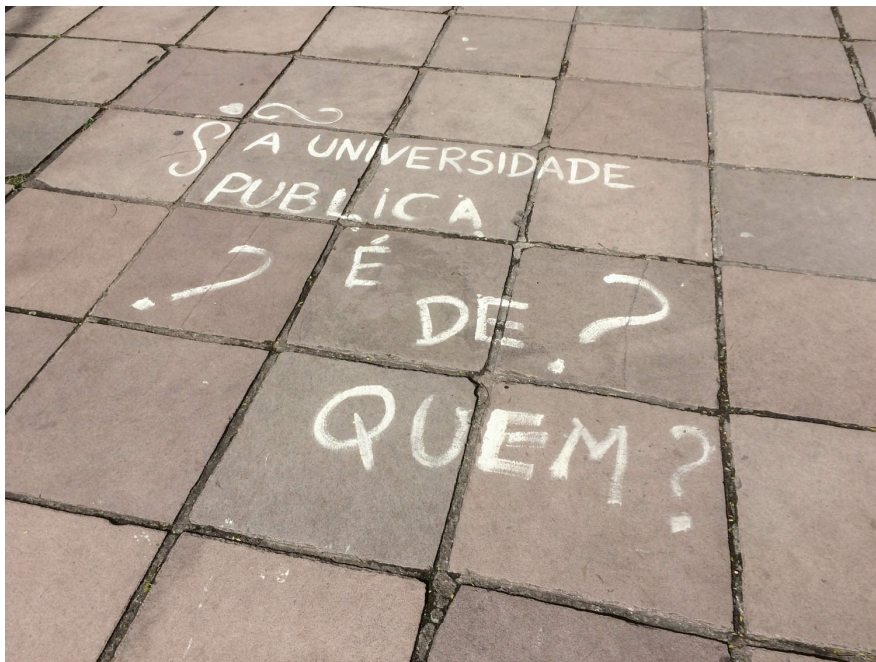 A UNIVERSIDADE
PUBLICA
? É
DE ?
QUEM ?